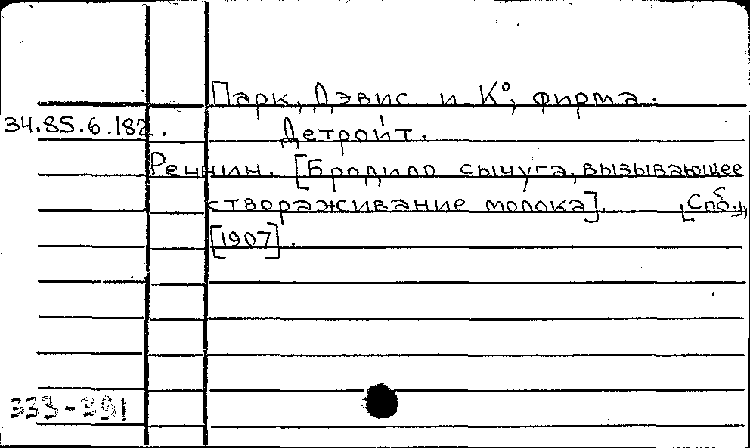 Парк, Дэвис и К°, фирма.
34.85.6.182. Детройт.
Реннин. [Бродило сычуга, вызывающее
створаживание молока]. [Спб.],
[1907].
333-391